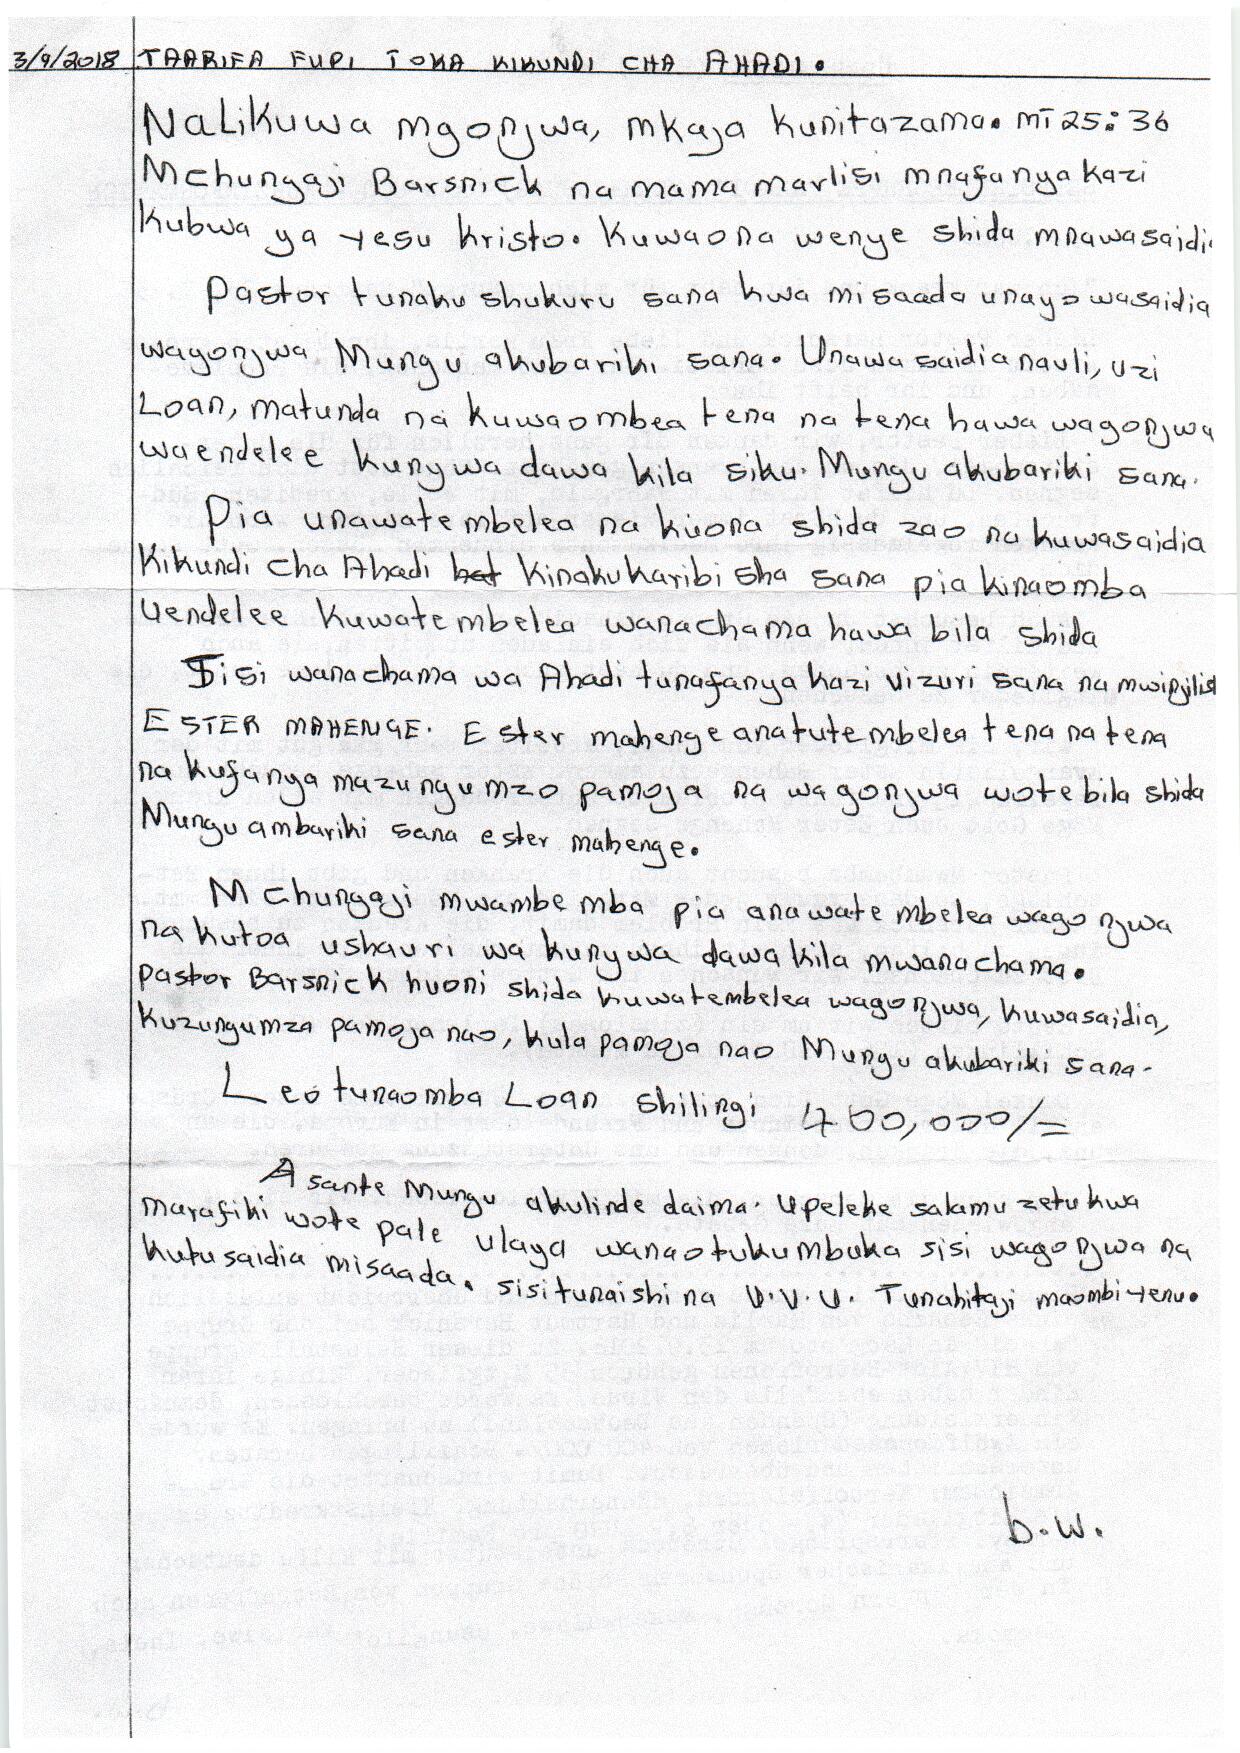 3/9/2018 TAARIFA FUPI TOKA KIKUNDI CHA AHADI.
Nalikuwa mgonjwa, mkaja kunitazama. MT 25: 36
Mchungaji Barsnick na mama marlisi mnafanya kazi
kubwa ya Yesu kristo. Kuwaona wenye shida mnawasaidia
Pastor tunaku shukuru sana kwa misaada unayowasaidia
wagonjwa. Mungu akubariki sana. Unawasaidia nauli, uzi
Loan, matunda na kuwaombea tena na tena hawa wagonjwa
waendelee kunywa dawa kila siku. Mungu akubariki sana.
Pia unawatembelea na kuona shida zao na kuwasaidia
Kikundi cha Ahadi kinakukaribisha sana pia kinaomba
uendelee kuwatembelea wanachama hawa bila shida
Sisi wanachama wa Ahadi tunafanya kazi vizuri sana na mwinjilist
ESTER MAHENGE. Ester mahenge anatutembelea tena na tena
na kufanya mazungumzo pamoja na wagonjwa wote bila shida
Mungu ambariki sana ester mahenge.
Mchungaji mwambemba pia anawatembelea wagonjwa
na kutoa ushauri wa kunywa dawa kila mwanachama.
pastor Barsnick huoni shida kuwatembelea wagonjwa, kuwasaidia,
kuzungumza pamoja nao, kula pamoja nao Mungu akubariki sana.
Leo tunaomba Loan shilingi 400,000/=
Asante Mungu akulinde daima. Upeleke salamu zetu kwa
marafiki wote pale ulaya wanaotukumbuka sisi wagonjwa na
kutusaidia misaada. sisi tunaishi na V.V.U. Tunahitaji maombi yenu.
b.w.